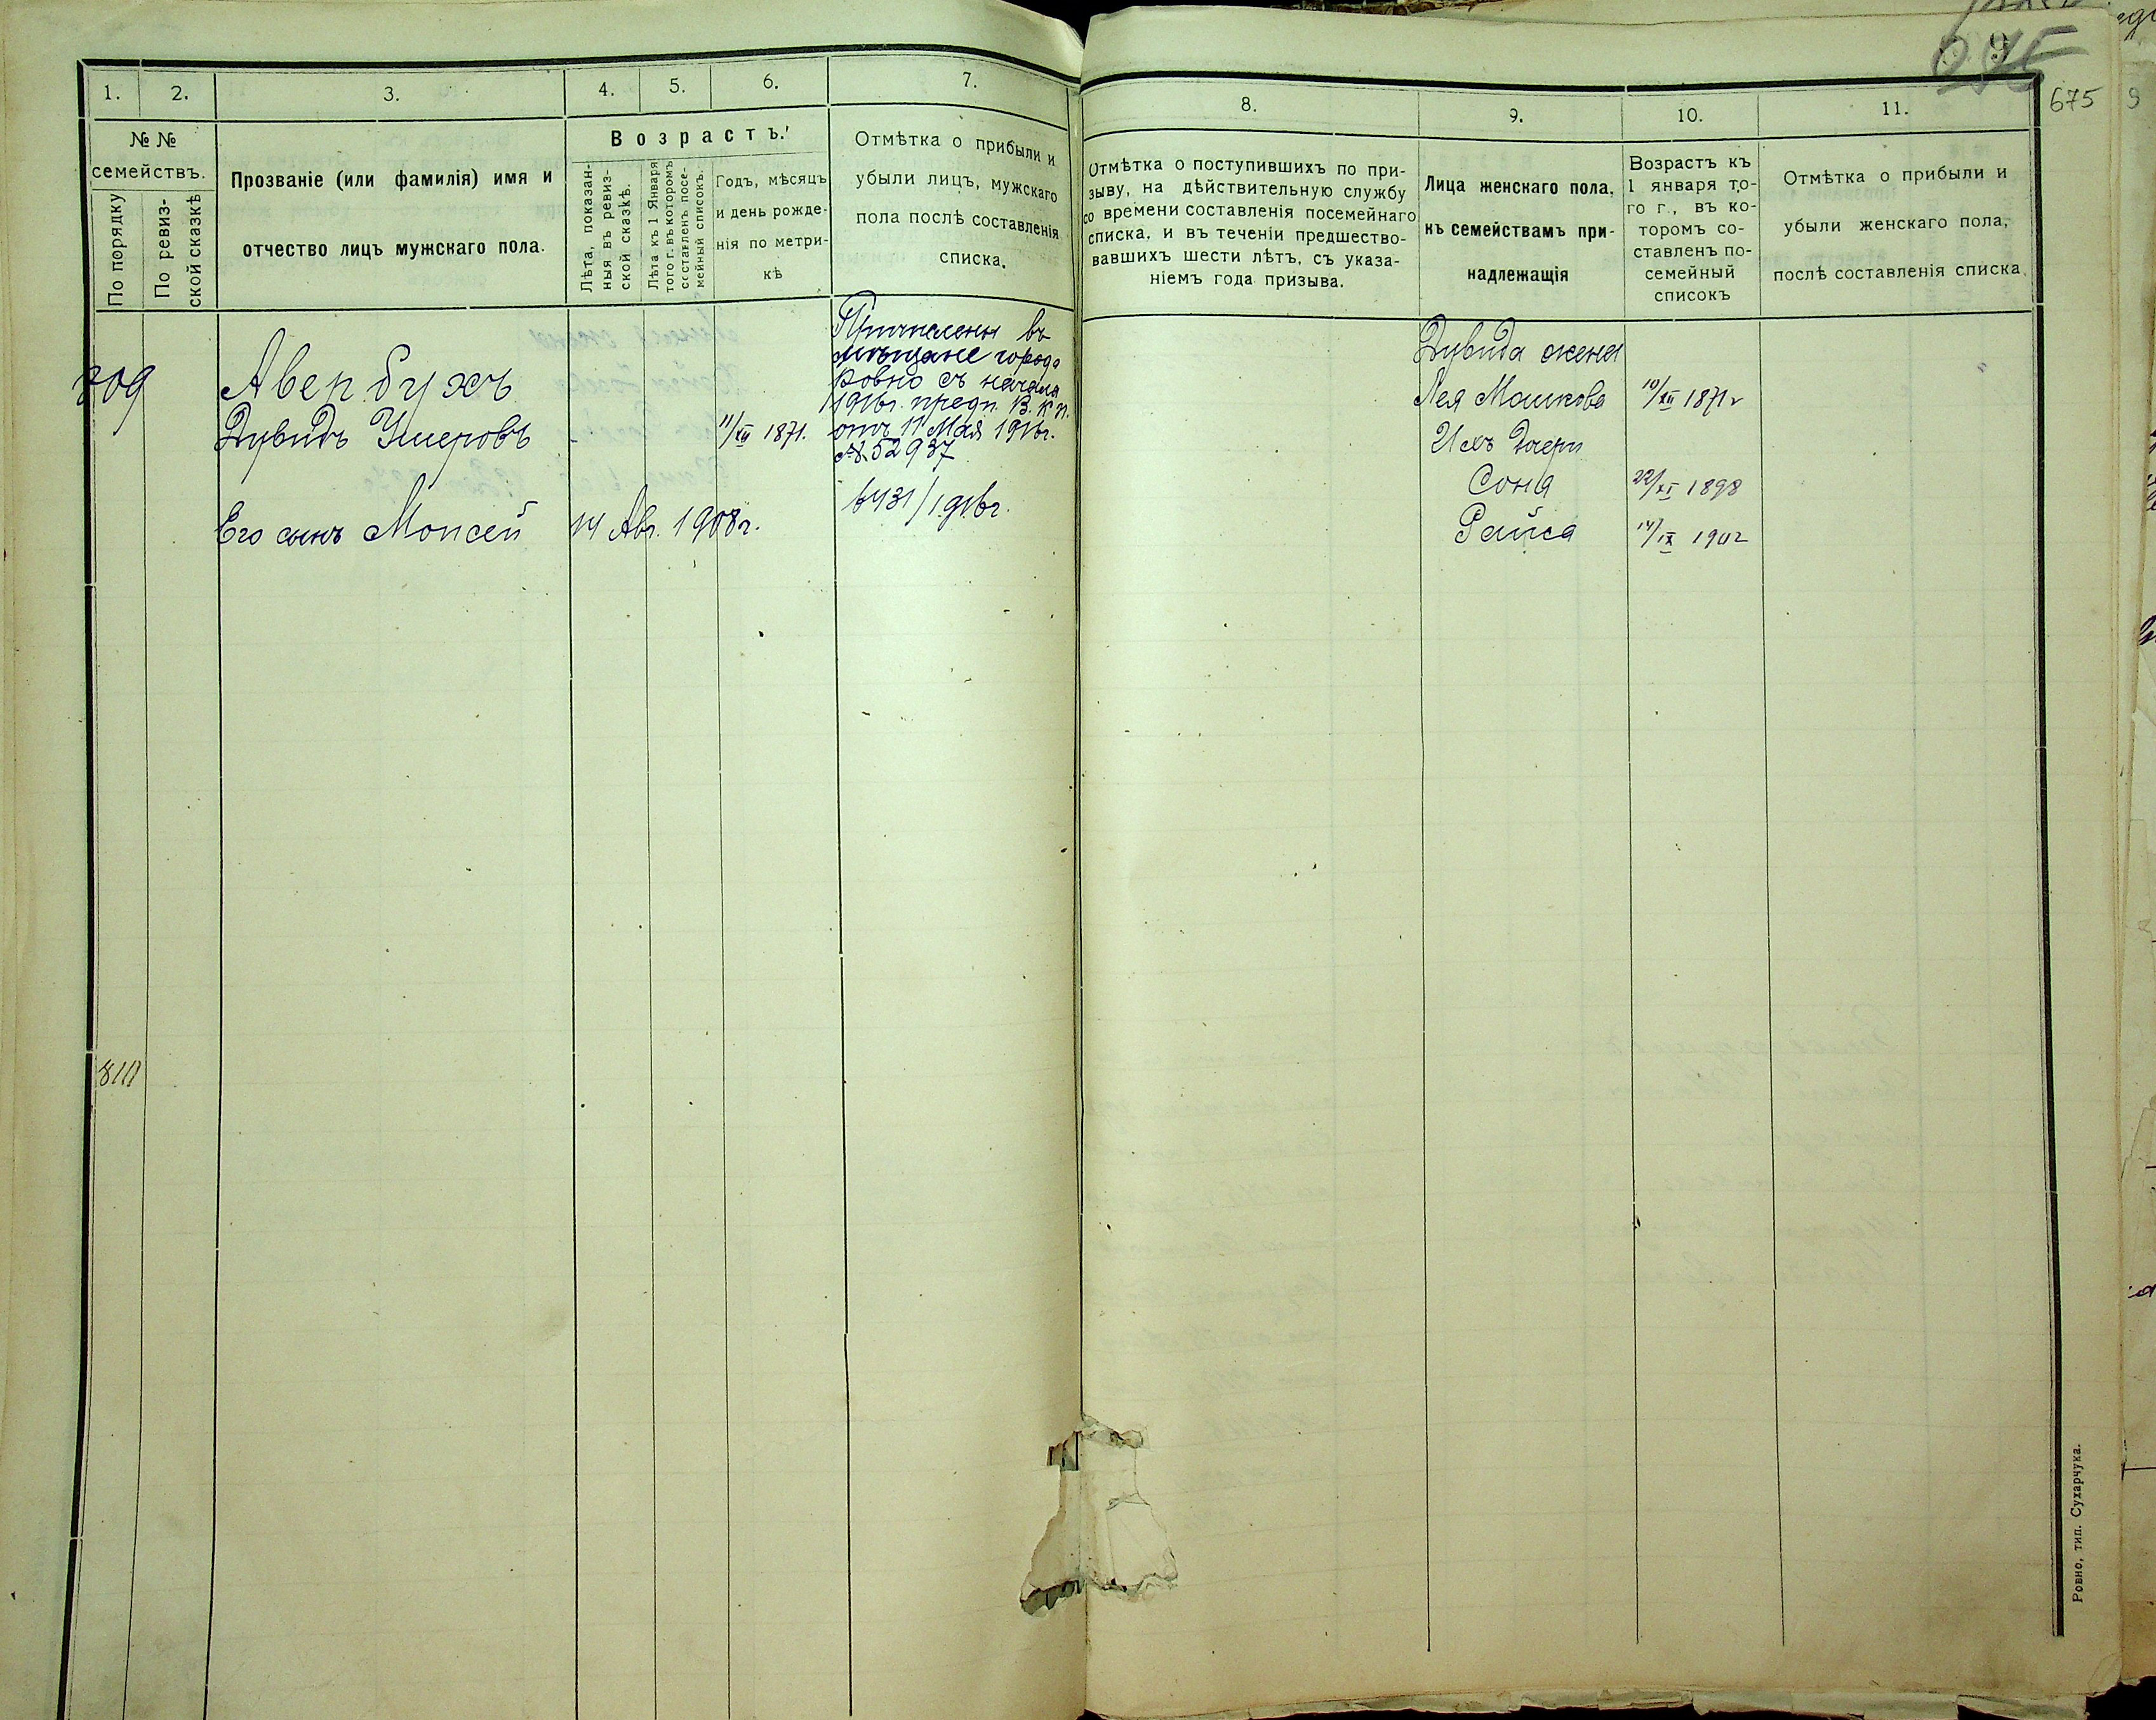 1. 2. 3. 4. 5. 6. 7.
№ №
семействъ.
По порядку
По ревиз-
ской сказкѣ
Прозваніе (или фамилія) имя и
отчество лицъ мужскаго пола.
Возрастъ.
Лѣта, показан-
ныя въ ревиз-
ской сказкѣ.
Лѣта къ 1 Января
того г. въ которомъ
составленъ посе-
мейный списокъ.
Годъ, мѣсяцъ
и день рожде-
нія по метри-
кѣ
Отмѣтка о прибыли и
убыли лицъ, мужскаго
пола послѣ составленія
списка.
809
Авербухъ
Дувидъ Умеровъ
11/XII 1871.
Его сынъ Моисей 14 Авг. 1908г.
Причислены въ
мѣщане города
Ровно съ начала
1916г. предп. В. К. П.
отъ 11 Мая 1916г.
№ 52937
6431/1916г.
810
9
675
8. 9. 10. 11.
Отмѣтка о поступившихъ по при-
зыву, на дѣйствительную службу
со времени составленія посемейнаго
списка, и въ теченіи предшество-
вавшихъ шести лѣтъ, съ указа-
ніемъ года призыва.
Лица женскаго пола,
къ семействамъ при-
надлежащія
Возрастъ къ
1 января то-
го г., въ ко-
торомъ со-
ставленъ по-
семейный
списокъ
Отмѣтка о прибыли и
убыли женскаго пола,
послѣ составленія списка.
Дувида жена
Лея Машкова 10/XII 1871г
Ихъ дочери
Соня 22/XI 1898
Райса 14/IX 1902
Ровно, тип. Сухарчука.